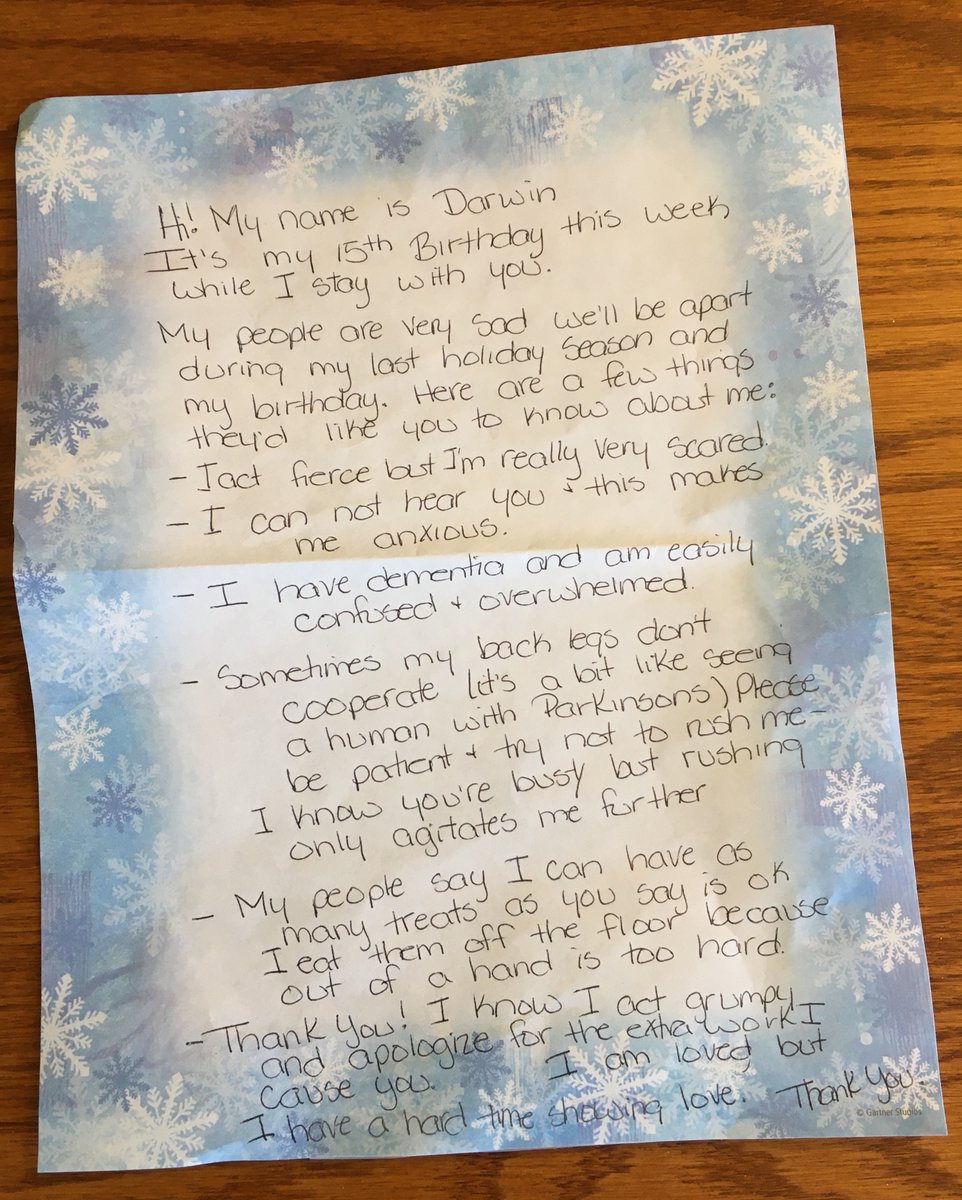 Hi! My name is Darwin
It's my 15th Birthday this week
while I stay with you.
My people are very sad we'll be apart
during my last holiday season and
my birthday. Here are a few things
they'd like you to know about me:
- I act fierce but I'm really very scared.
- I can not hear you & this makes
me anxious.
- I have dementia and am easily
confused & overwhelmed.
- Sometimes my back legs don't
cooperate (it's a bit like seeing
a human with Parkinsons) Please
be patient & try not to rush me -
I know you're busy but rushing
only agitates me further
- My people say I can have as
many treats as you say is ok
I eat them off the floor because
out of a hand is too hard.
- Thank you! I know I act grumpy
and apologize for the extra work I
cause you. I am loved but
I have a hard time showing love. Thank You.
© Gartner Studios